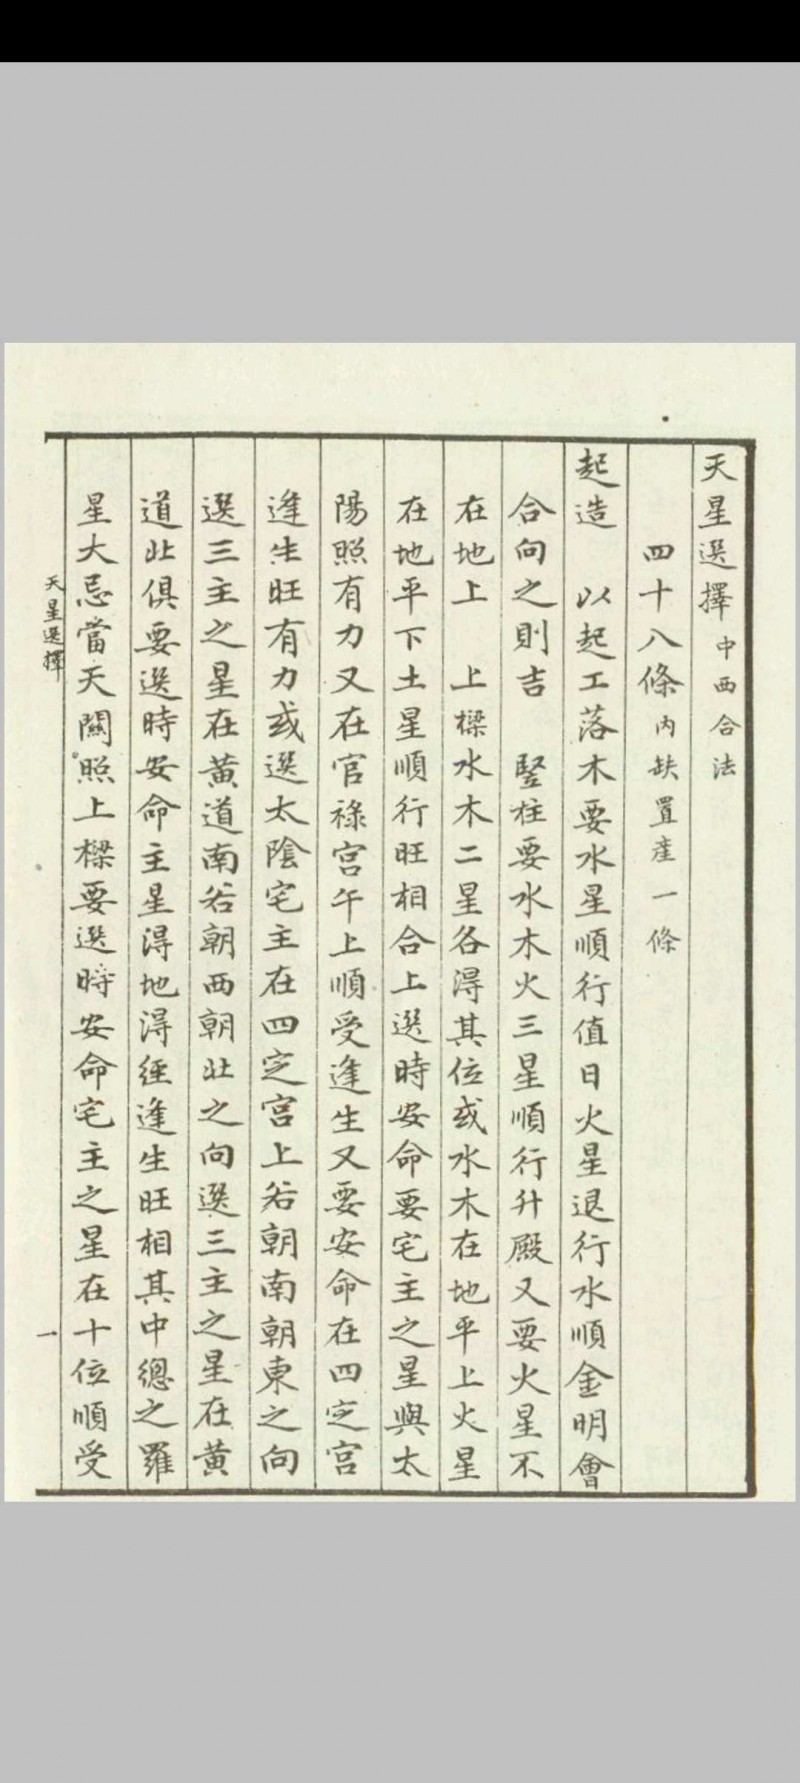 天星選擇中西合法
四十八條内缺置産一條
起造　以起工落木要水星順行值日火星退行水順金明會
合向之則吉　竪柱要水木火三星順行升殿又要火星不
在地上　上樑水木二星各得其位或水木在地平上火星
在地平下土星順行旺相合上選時安命要宅主之星與太
陽照有力又在官祿宮午上順受逢生又要安命在四定宮
逢生旺有力或選太陰宅主在四定宮上若朝南朝東之向
選三主之星在黃道南若朝西朝北之向選三主之星在黃
道北俱要選時安命主星得地得經逢生旺相其中總之羅
星大忌當天關照上樑要選時安命宅主之星在十位順受
天星選擇
一